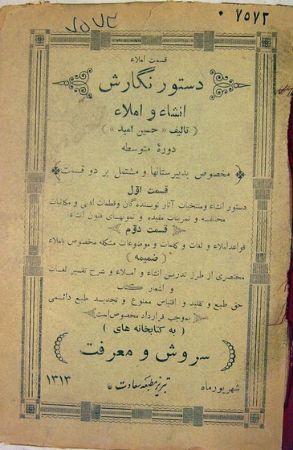 ۷۵۷۲
۷۵۷۲
قسمت املاء
دستور نگارش
انشاء و املاء
(تألیف «حسین امید»)
دورهٔ متوسطه
مخصوص بدبیرستانها و مشتمل بر دو قسمت
قسمت اول
دستور انشاء ومنتخبات آثار نویسندگان وقطعات ادبی و مکاتبات
مختلفه و تمرینات مفیده و نمونهای فنون انشاء
قسمت دوم
قواعد املاء و لغات و کلمات و موضوعات مشکله مخصوص باملاء
(ضمیمه)
مختصری از طرز تدریس انشاء و املاء و شرح تفسیر لغات
و اشعار کتاب
حق طبع و تقلید و اقتباس ممنوع و تجدید طبع دائمی
بموجب قرارداد مخصوص است
(به کتابخانه های)
سروش و معرفت
شهریورماه
تبریز مطبعه سعادت
۱۳۱۳